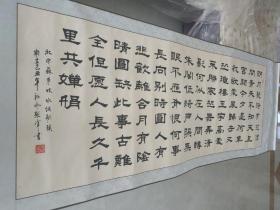 明月幾時有把酒
問青天不知天上
宮闕今夕是何年
我欲乘風歸去又
恐瓊樓玉宇高處
不勝寒起舞弄清
影何似在人間轉
朱閣低綺戶照無
眠不應有恨何事
長向別時圓人有
悲歡離合月有陰
晴圓缺此事古難
全但愿人長久千
里共嬋娟